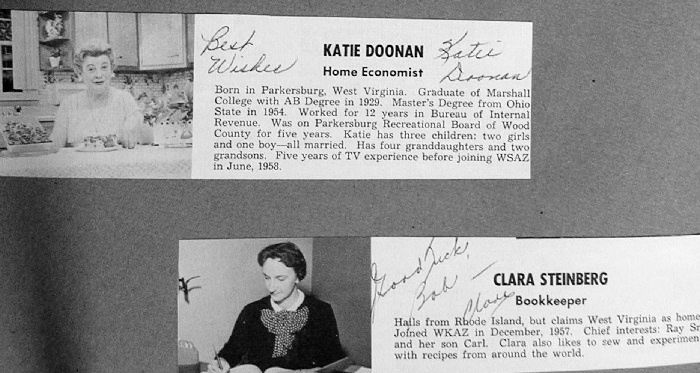 Best Wishes
KATIE DOONAN
Katie Doonan
Home Economist
Born in Parkersburg, West Virginia. Graduate of Marshall
College with AB Degree in 1929. Master's Degree from Ohio
State in 1954. Worked for 12 years in Bureau of Internal
Revenue. Was on Parkersburg Recreational Board of Wood
County for five years. Katie has three children: two girls
and one boy—all married. Has four granddaughters and two
grandsons. Five years of TV experience before joining WSAZ
in June, 1958.
Good Luck,
Bob —
Clara
CLARA STEINBERG
Bookkeeper
Hails from Rhode Island, but claims West Virginia as home
Joined WKAZ in December, 1957. Chief interests: Ray
and her son Carl. Clara also likes to sew and experiment
with recipes from around the world.